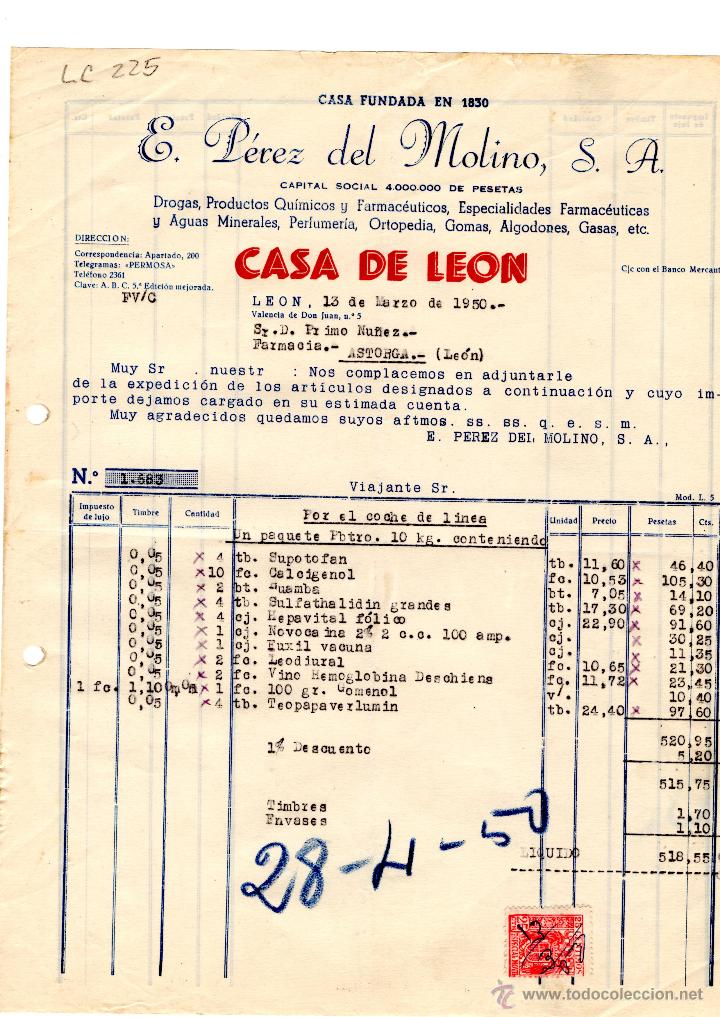 LC 225
CASA FUNDADA EN 1830
E. Pérez del Molino, S. A.
CAPITAL SOCIAL 4.000.000 DE PESETAS
Drogas, Productos Químicos y Farmacéuticos, Especialidades Farmacéuticas
y Aguas Minerales, Perfumería, Ortopedia, Gomas, Algodones, Gasas, etc.
DIRECCION:
Correspondencia: Apartado, 200
Telegramas: «PERMOSA»
Teléfono 2361
Clave: A. B. C. 5.ª Edición mejorada.
FV/C
CASA DE LEON
C/c con el Banco Mercant
LEON, 13 de Marzo de 1950.-
Valencia de Don Juan, n.º 5
Sr.D. Primo Nuñez.-
Farmacia.- ASTORGA.- (León)
Muy Sr . nuestr : Nos complacemos en adjuntarle
de la expedición de los artículos designados a continuación y cuyo im-
porte dejamos cargado en su estimada cuenta.
Muy agradecidos quedamos suyos aftmos. ss. ss. q. e. s. m.
E. PEREZ DEL MOLINO, S. A.,
N.º 1.683
Viajante Sr.
Mod. L. 5
Impuesto de lujo Timbre Cantidad Por el coche de linea Unidad Precio Pesetas Cts.
Un paquete Pbtro. 10 kg. conteniendo
0,05 x 4 tb. Supotofan tb. 11,60 x 46,40
0,05 x 10 fc. Calcigenol fc. 10,53 x 105,30
0,05 x 2 bt. Huamba bt. 7,05 x 14,10
0,05 x 4 tb. Sulfathalidin grandes tb. 17,30 x 69,20
0,05 x 4 cj. Hepavital fólico cj. 22,90 x 91,60
0,05 x 1 cj. Novocaina 2% 2 c.c. 100 amp. cj. x 30,25
0,05 x 1 cj. Euxil vacuna cj. x 11,35
0,05 x 2 fc. Leodiural fc. 10,65 x 21,30
0,05 x 2 fc. Vino Hemoglobina Deschiens fq. 11,72 x 23,45
1 fc. 1,10 x 1 fc. 100 gr. Gomenol v/. 10,40
0,05 x 4 tb. Teopapaverlumin tb. 24,40 x 97,60
520,95
1% Descuento 5,20
515,75
Timbres 1,70
Envases 1,10
LIQUIDO 518,55
28-4-50
todocoleccion
www.todocoleccion.net